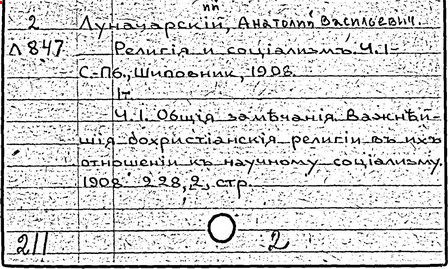 2 Луначарскій, Анатолий Васильевич.
Л 847 Религія и соціализмъ. Ч. 1-
С-Пб., Шиповник, 1908.
1т.
Ч. 1. Общія замѣчанія. Важнѣй-
шія дохристіанскія религіи въ ихъ
отношеніи къ научному соціализму.
1908. 228, 2, стр.
211 2